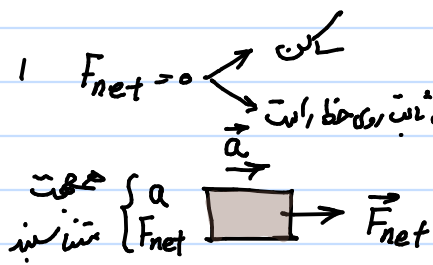 1 F_net = 0 ساکن
ثابت روی خط راست
a⃗
هم جهت { a
متناسبند { F_net F⃗_net